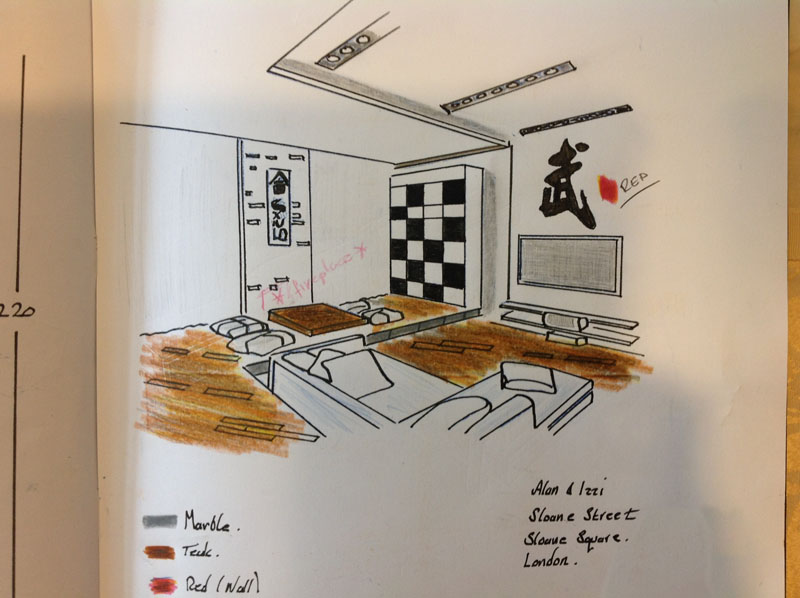 220
合
武
RED
*fireplace*
Marble.
Teak.
Red (Wall)
Alan & Izzi
Sloane Street
Sloane Square.
London.